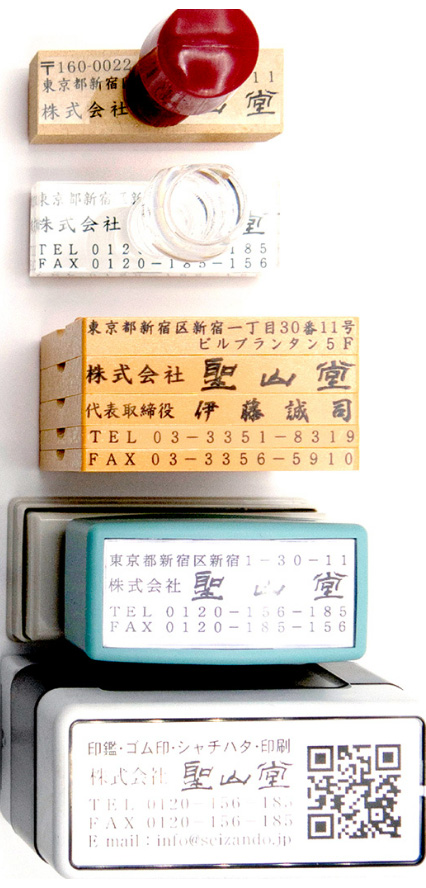 〒160-0022
東京都新宿 11
株式会社 山堂
東京都新宿
株式会社
TEL 0120 185
FAX 0120-185-156
東京都新宿区新宿一丁目30番11号
ビルプランタン5F
株式会社 聖山堂
代表取締役 伊藤誠司
TEL 03-3351-8319
FAX 03-3356-5910
東京都新宿区新宿1-30-11
株式会社 聖山堂
TEL 0120-156-185
FAX 0120-185-156
印鑑・ゴム印・シャチハタ・印刷
株式会社 聖山堂
TEL 0120-156-185
FAX 0120-185-156
E mail : info@seizando.jp